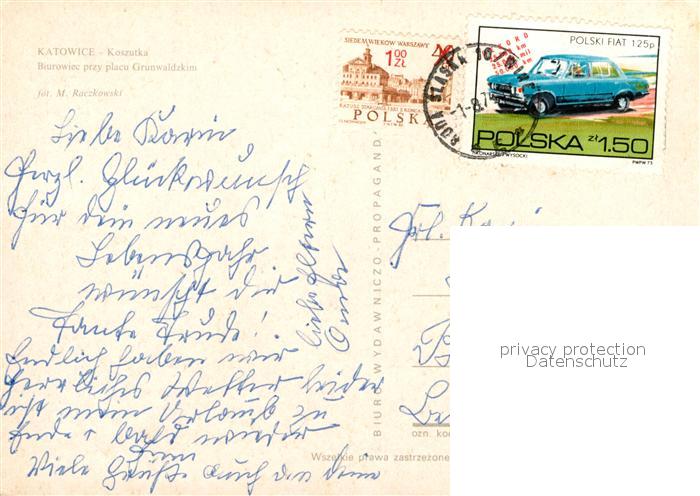 KATOWICE - Koszutka
Biurowiec przy placu Grunwaldzkim
fot. M. Raczkowski
SIEDEM WIEKÓW WARSZAWY
1.00
ZŁ
POLSKA
POLSKI FIAT 125p
POLSKA zł 1.50
PWPW 73
Liebe Karin
Herzl. Glückwunsch
für dein neues
Lebensjahr
wünscht dir
Tante Trude!
Endlich haben wir
herrliches Wetter leider
ist mein Urlaub zu
Ende u bald wieder
Viele Grüße auch an deine
liebe Eltern
BIURO WYDAWNICZO-PROPAGAND
Frl. Kari
Wszelkie prawa zastrzeżone
ozn. ko
privacy protection
Datenschutz